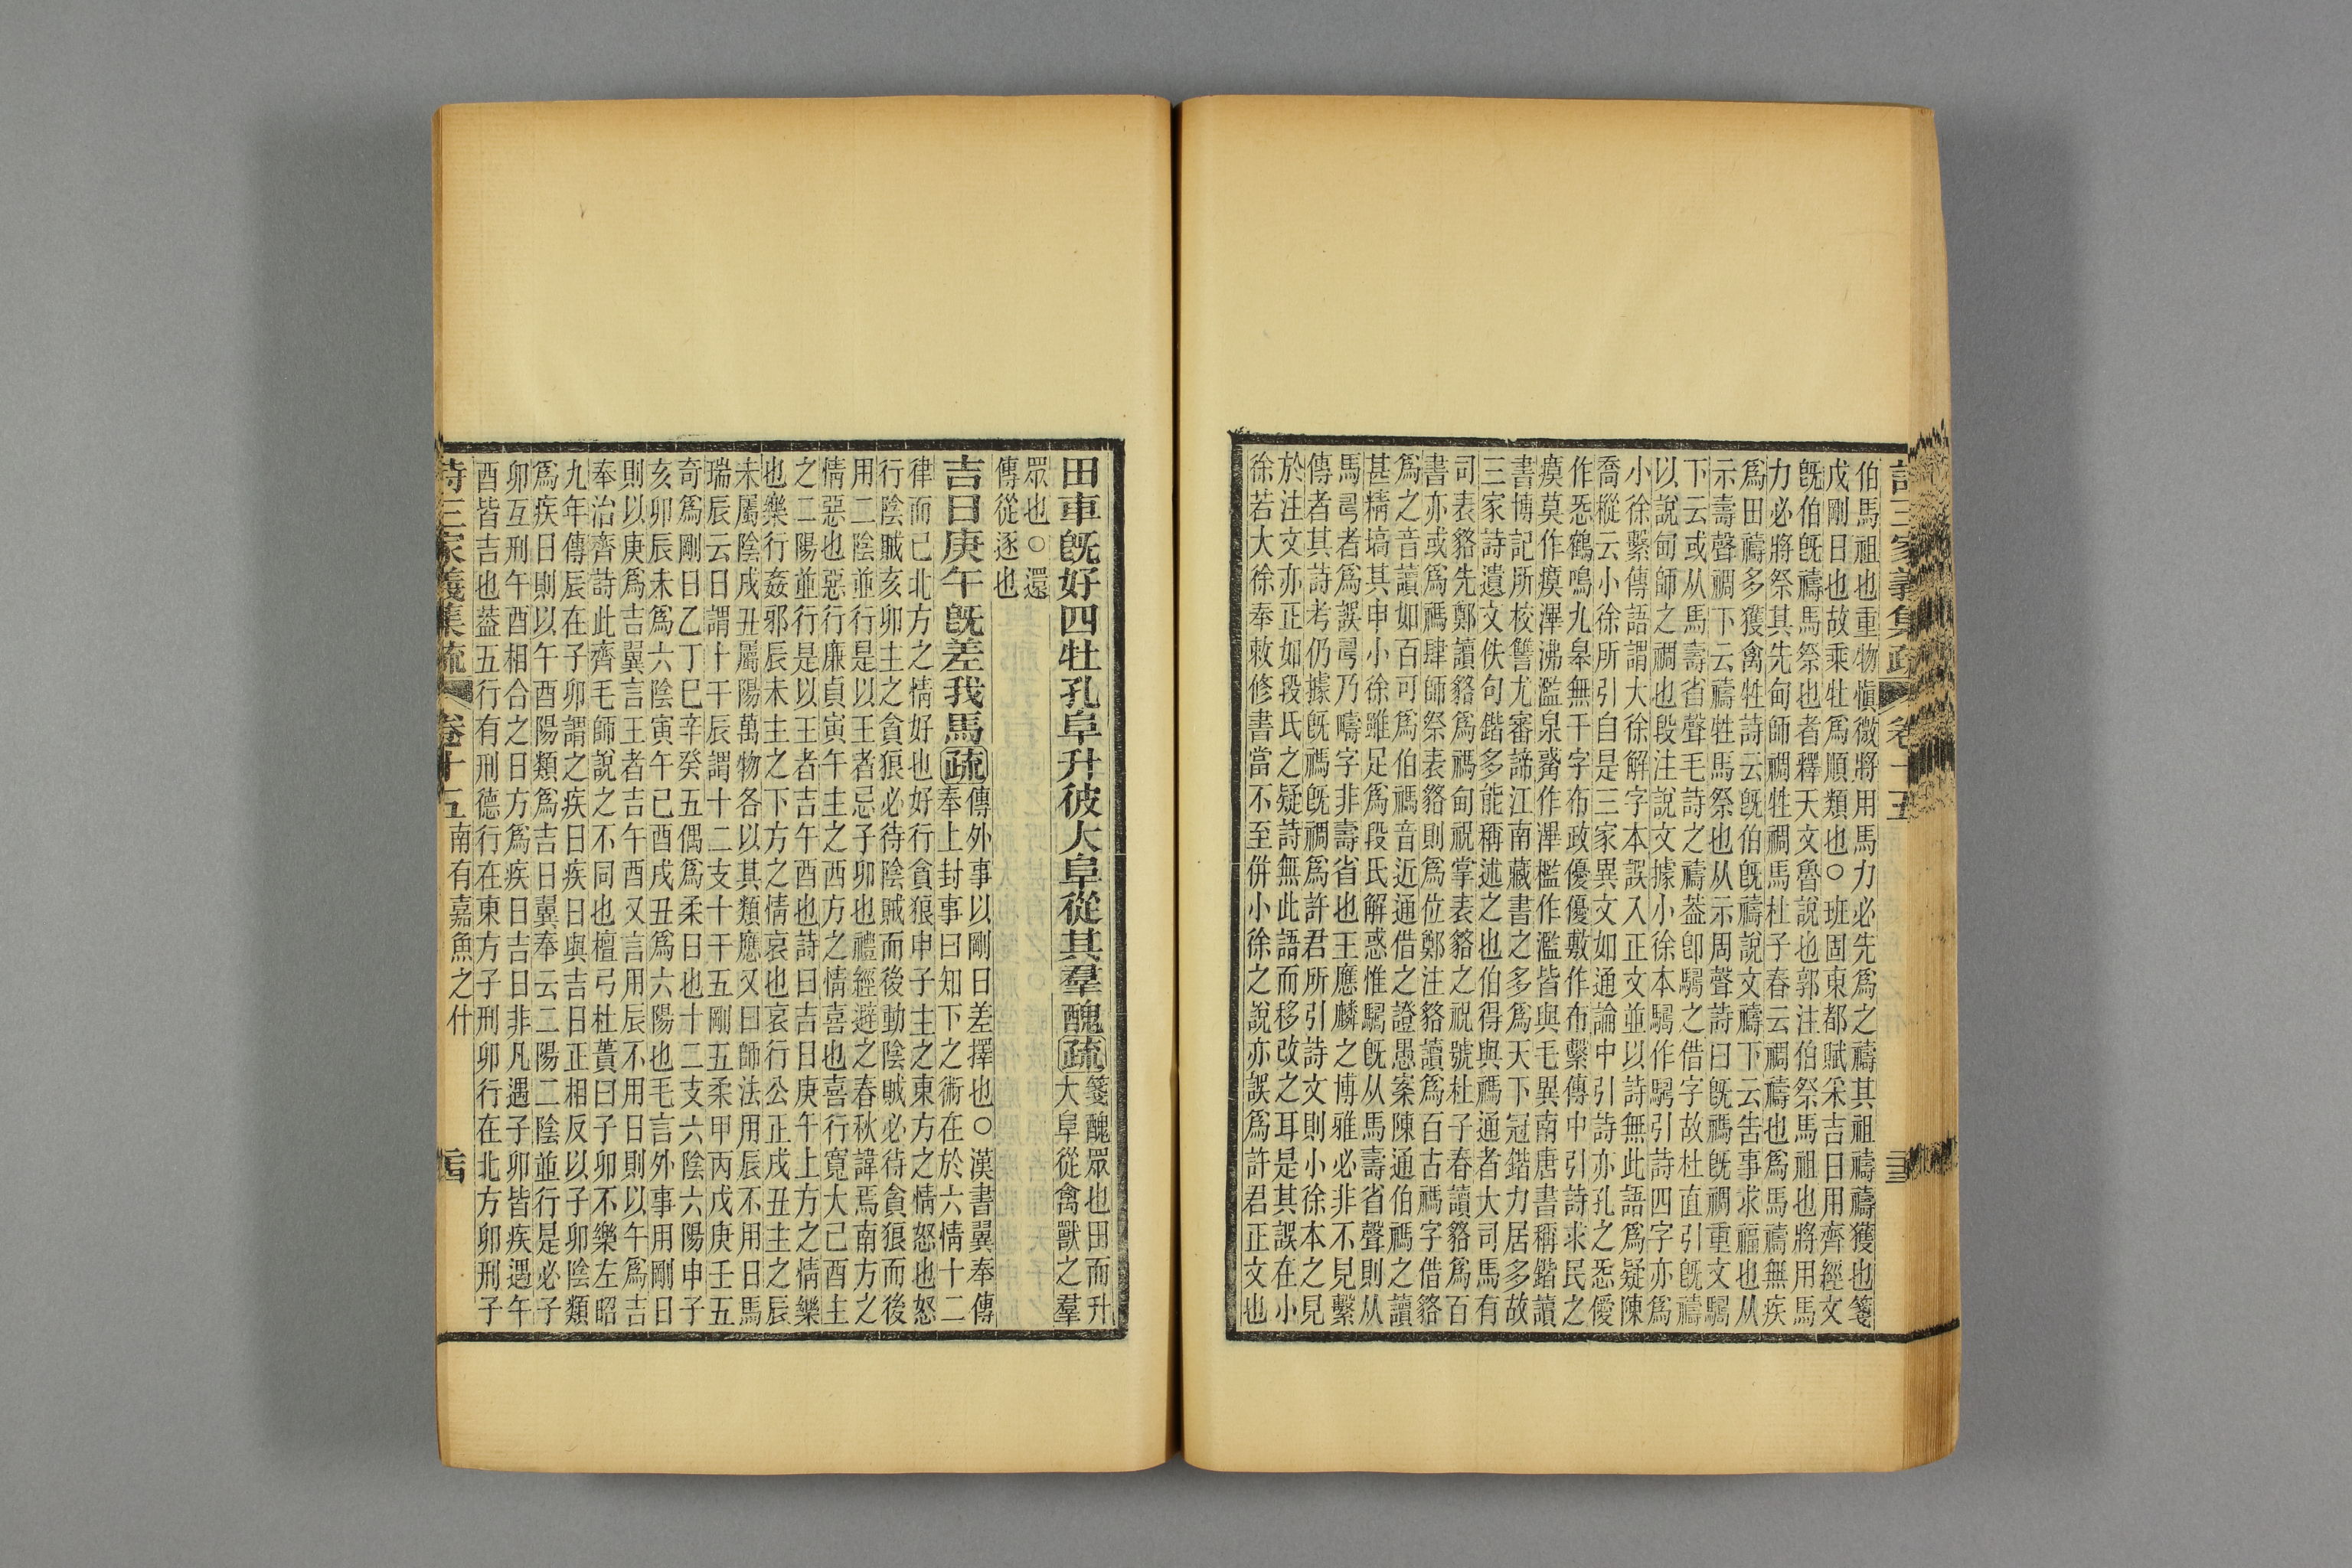 詩三家義集疏 卷十五
伯馬祖也重物愼微將用馬力必先爲之禱其祖禱禱獲也箋
戊剛日也故乘牡爲順類也○班固東都賦采吉日用齊經文
旣伯旣禱馬祭也者釋天文魯說也郭注伯祭馬祖也將用馬
力必將祭其先甸師禂牲禂馬杜子春云禂禱也爲馬禱無疾
爲田禱多獲禽牲詩云旣伯旣禱說文禱下云吿事求福也从
示壽聲禂下云禱牲馬祭也从示周聲詩曰旣禡旣禂重文𩦲
下云或从馬壽省聲毛詩之禱葢卽𩦲之借字故杜直引旣禱
以說甸師之禂也段注說文據小徐本作引詩四字亦爲
小徐繫傳語謂大徐解字本誤入正文並以詩無此語爲疑陳
喬樅云小徐所引自是三家異文如通論中引詩亦孔之㤅僾
作㤅鶴鳴九皋無于字布政優優敷作布繫傳中引詩求民之
瘼莫作瘼滭沸濫泉觱作滭檻作濫皆與毛異南唐書稱鍇讀
書博記所校讐尤審諦江南藏書之多爲天下冠鍇力居多故
三家詩遺文佚句鍇多能稱述之也伯得與禡通者大司馬有
司表貉先鄭讀貉爲禡甸祝掌表貉之祝號杜子春讀貉爲百
書亦或爲禡肆師祭表貉則爲位鄭注貉讀爲百古禡字借貉
爲之音讀如百可爲伯禡音近通借之證愚案陳通伯禡之讀
甚精塙其申小徐雖足爲段氏解惑惟𩦲旣从馬壽省聲則从
馬𠷎者爲誤𠷎乃疇字非壽省也王應麟之博雅必非不見繫
傳者其詩考仍據旣禡旣禂爲許君所引詩文則小徐本之見
於注文亦正如段氏之疑詩無此語而移改之耳是其誤在小
徐若大徐奉敕修書當不至併小徐之說亦誤爲許君正文也
田車旣好四牡孔阜升彼大阜從其羣醜疏箋醜眾也田而升
大阜從禽獸之羣
眾也○還
傳從逐也
吉日庚午旣差我馬疏傳外事以剛日差擇也○漢書翼奉傳
奉上封事曰知下之術在於六情十二
律而已北方之情好也好行貪狼申子主之東方之情怒也怒
行陰賊亥卯主之貪狼必待陰賊而後動陰賊必待貪狼而後
用二陰並行是以王者忌子卯也禮經避之春秋諱焉南方之
情惡也惡行廉貞寅午主之西方之情喜也喜行寬大己酉主
之二陽並行是以王者吉午酉也詩曰吉日庚午上方之情樂
也樂行姦邪辰未主之下方之情哀也哀行公正戌丑主之辰
未屬陰戌丑屬陽萬物各以其類應又曰師法用辰不用日馬
瑞辰云日謂十干辰謂十二支十干五剛五柔甲丙戊庚壬五
奇爲剛日乙丁巳辛癸五偶爲柔日也十二支六陰六陽申子
亥卯辰未爲六陰寅午已酉戌丑爲六陽也毛言外事用剛日
則以庚爲吉翼言王者吉午酉又言用辰不用日則以午爲吉
奉治齊詩此齊毛師說之不同也檀弓杜蕢曰子卯不樂左昭
九年傳辰在子卯謂之疾日疾日與吉日正相反以子卯陰類
爲疾日則以午酉陽類爲吉日翼奉云二陽二陰並行是必子
卯互刑午酉相合之日方爲疾日吉日非凡遇子卯皆疾遇午
酉皆吉也葢五行有刑德行在東方子刑卯行在北方卯刑子
詩三家義集疏 卷十五 南有嘉魚之什